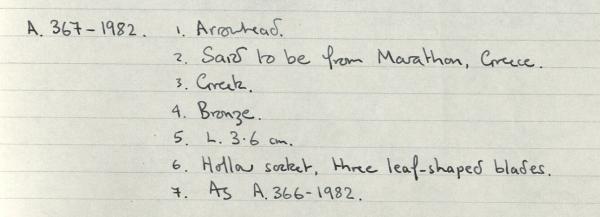 A. 367-1982. 1. Arrowhead.
2. Said to be from Marathon, Greece.
3. Greek.
4. Bronze.
5. L. 3.6 cm.
6. Hollow socket, three leaf-shaped blades.
7. As A.366-1982.